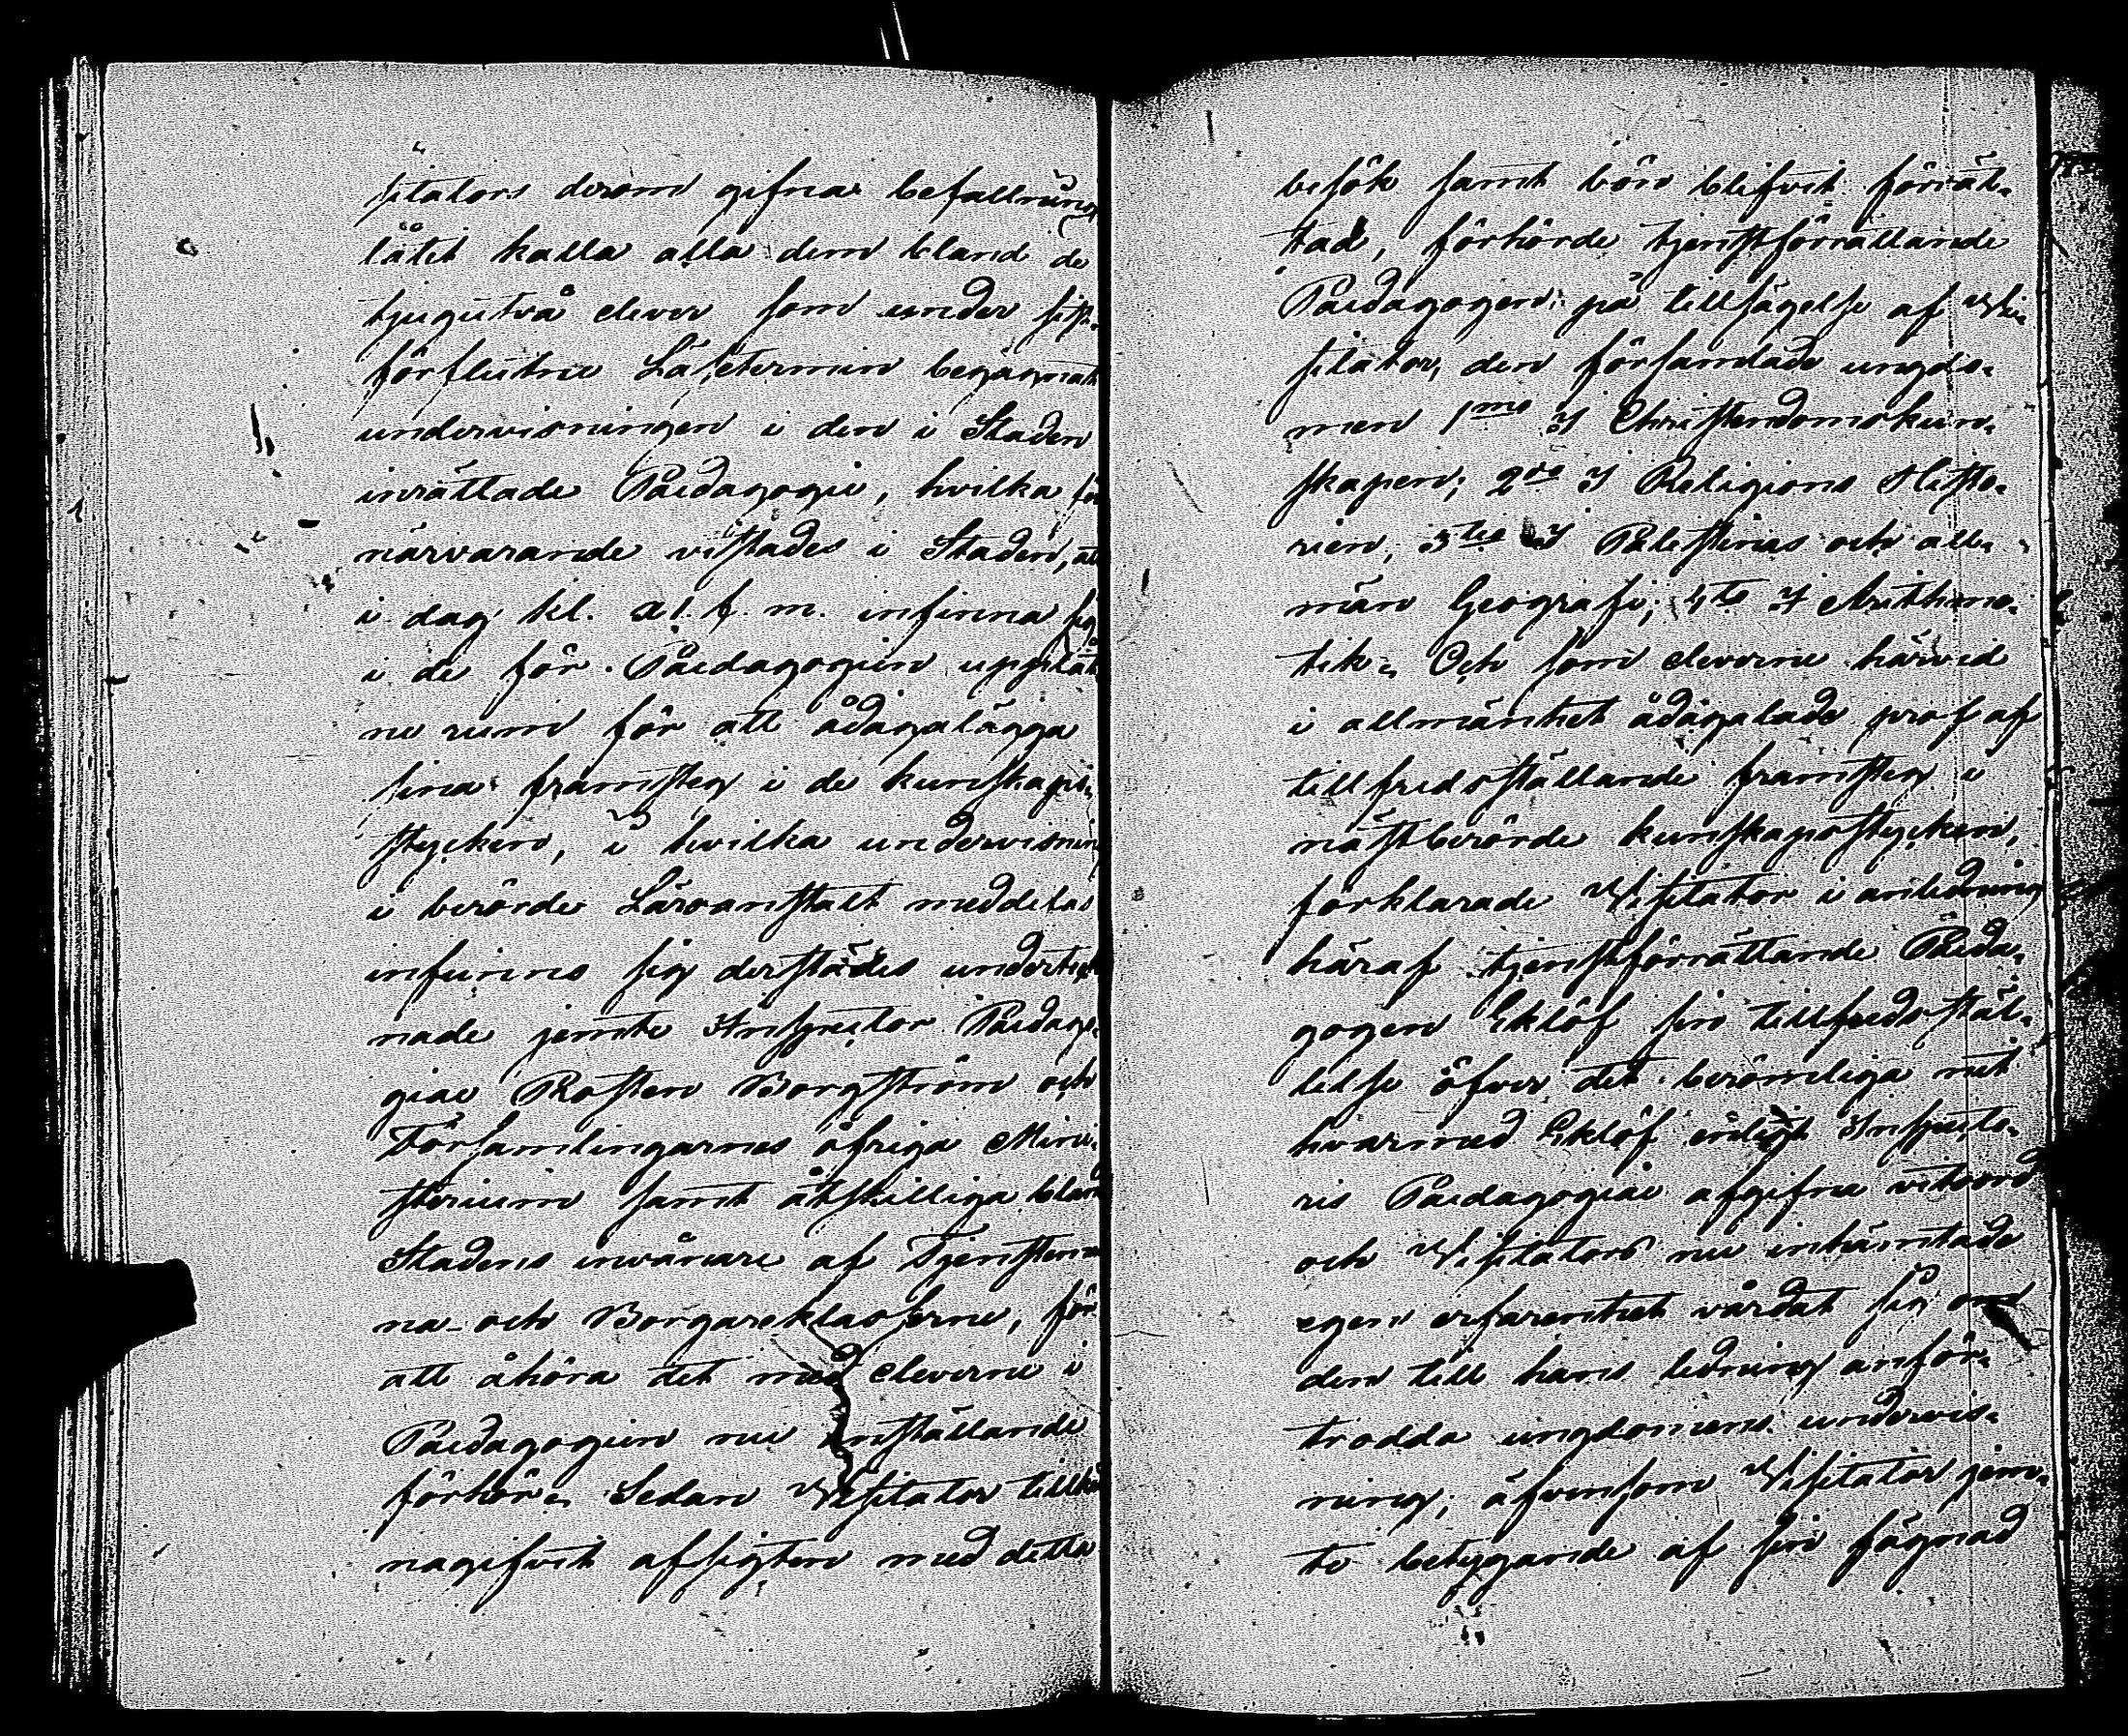 sitators derom gifna befallning
låtit kalla alla dem bland de
tjugutvå elever som under sist
förflutne Läsetermin begagnat
undervisningen i den i Staden
inrättade Pædagogie, hvilka för
närvarande vistades i Staden, att
i dag kl. f. m. infinna sig
i de för Pædagogien upplåt
ne rum för att ådagalägga
sina framsteg i de kunskaps-
stycken, i hvilka undervisning
i berörde Läroanstalt meddelas
infunno sig derstädes underteck
nade jemte Inspector Pædago-
giae Prosten Borgström och
Församlingarnes öfriga Mini-
sterium samt åtskilliga bland
Stadens invånare af Tjenstemä
na- och Borgareklasserne, för
att åhöra det med eleverne i
Pædagogien nu anställande
förhör. Sedan Visitator tillkän
nagifvit afsigten med detta
besök samt bön blifvit förrät-
tad, förhörde tjenstförrättande
Pædagogen på tillsägelse af Vi-
sitator, den församlade ungdo-
men 1mo I Christendomskun-
skapen; 2do I Religions Histo-
rien; 3tio I Palestinas och all-
män Geografi; 4to I Arithme-
tik. Och som eleverne härvid
i allmänhet ådagalade prof af
tillfredsställande framsteg i
nästberörde kunskapsstycken,
förklarade Visitator i anledning
häraf tjenstförrättande Pæda-
gogen Eklöf sin tillfredsstäl-
lelse öfver det berömliga nit
hvarmed Eklöf enligt Inspecto-
ris Pædagogiae afgifne vitsord
och Visitators nu inhämtade
egen erfarenhet vårdat sig om
den till hans ledning anför-
trodda ungdomens undervis-
ning; äfvensom Visitator jem-
te betygande af sin fägnad